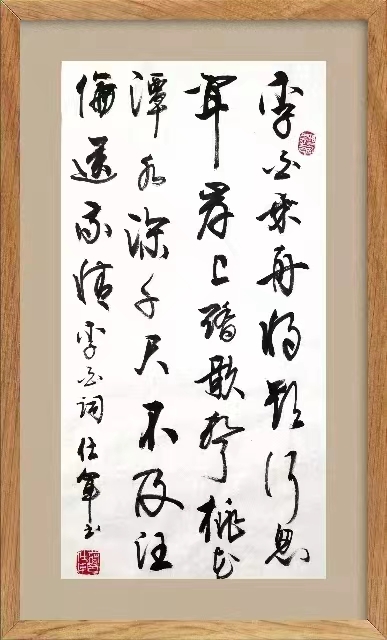 李白乘舟将欲行忽
闻岸上踏歌声桃花
潭水深千尺不及汪
倫送我情 李白词 仕军书